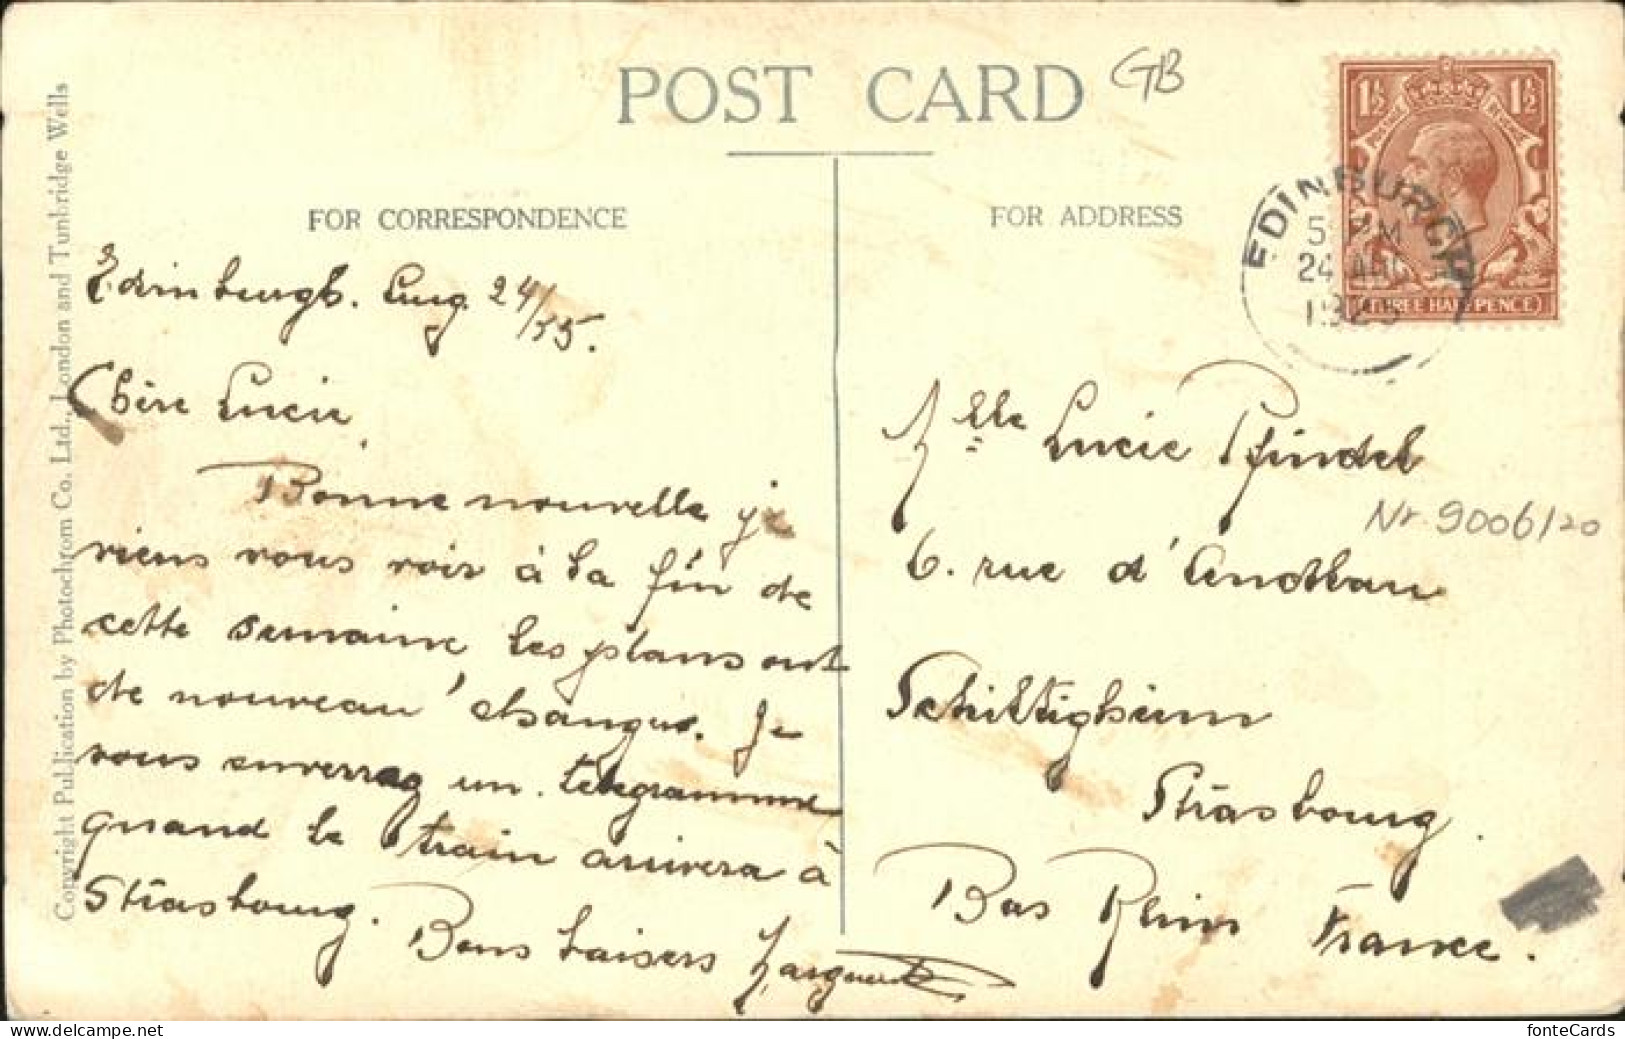 POST CARD
GB
1½ 1½
POSTAGE REVENUE
THREE HALF PENCE
EDINBURGH
5 PM
24 AUG
1925
FOR CORRESPONDENCE
FOR ADDRESS
Edinburgh. Aug 24/25.
Chère Lucie,
Bonne nouvelle je
viens vous voir à la fin de
cette semaine les plans ont
de nouveau changés. Je
vous enverrai un telegramme
quand le train arrivera à
Strasbourg.
Bons baisers Marguerite
Mlle Lucie Pfindel
Nr 9006120
6. rue d'Andlau
Schiltigheim
Strasbourg.
Bas Rhin France.
Copyright Publication by Photochrom Co. Ltd., London and Tunbridge Wells
fonteCards